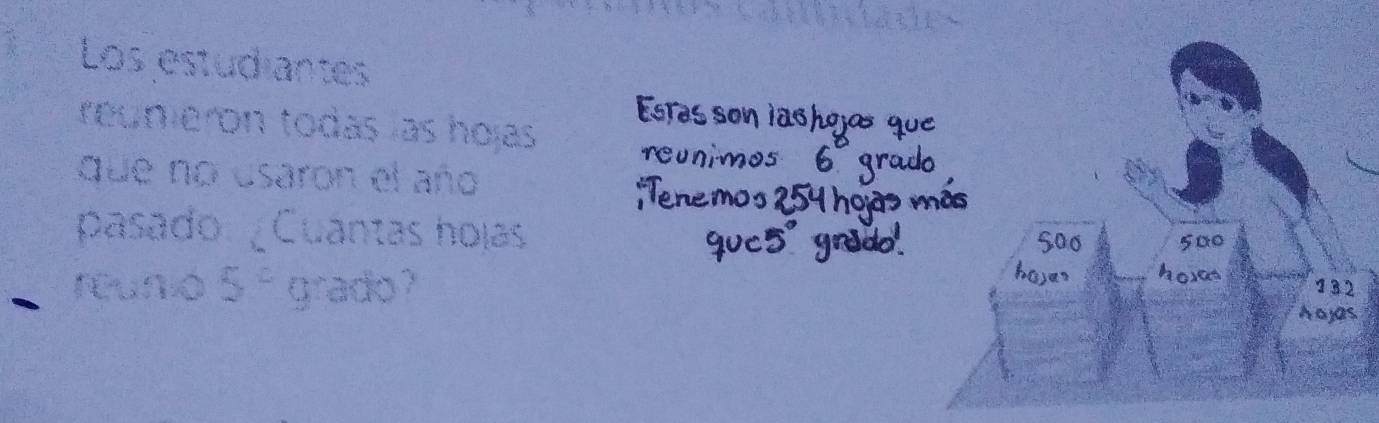 Los estudiantes
reunieron todas las hojas
que no usaron el año
pasado. ¿Cuántas hojas
reunió 5° grado?
Estas son las hojas que
reunimos 6° grado
¡Tenemos 254 hojas más
que 5° grado!
500
hojas
500
hojas
132
hojas